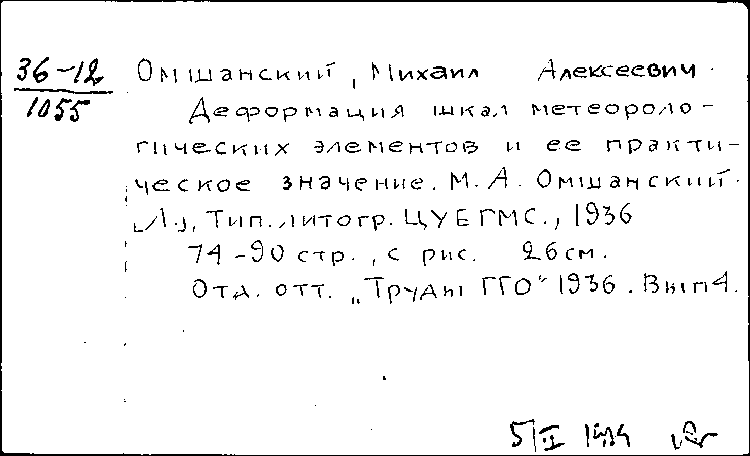 36-12
1055
Омшанский, Михаил Алексеевич.
Деформация шкал метеороло-
гических элементов и ее практи-
ческое значение. М. А. Омшанский.
[Л.], Тип. литогр. ЦУЕГМС., 1936
74-90 стр., с рис. 26 см.
Отд. отт. „Труды ГГО" 1936. Вып 4.
5/II